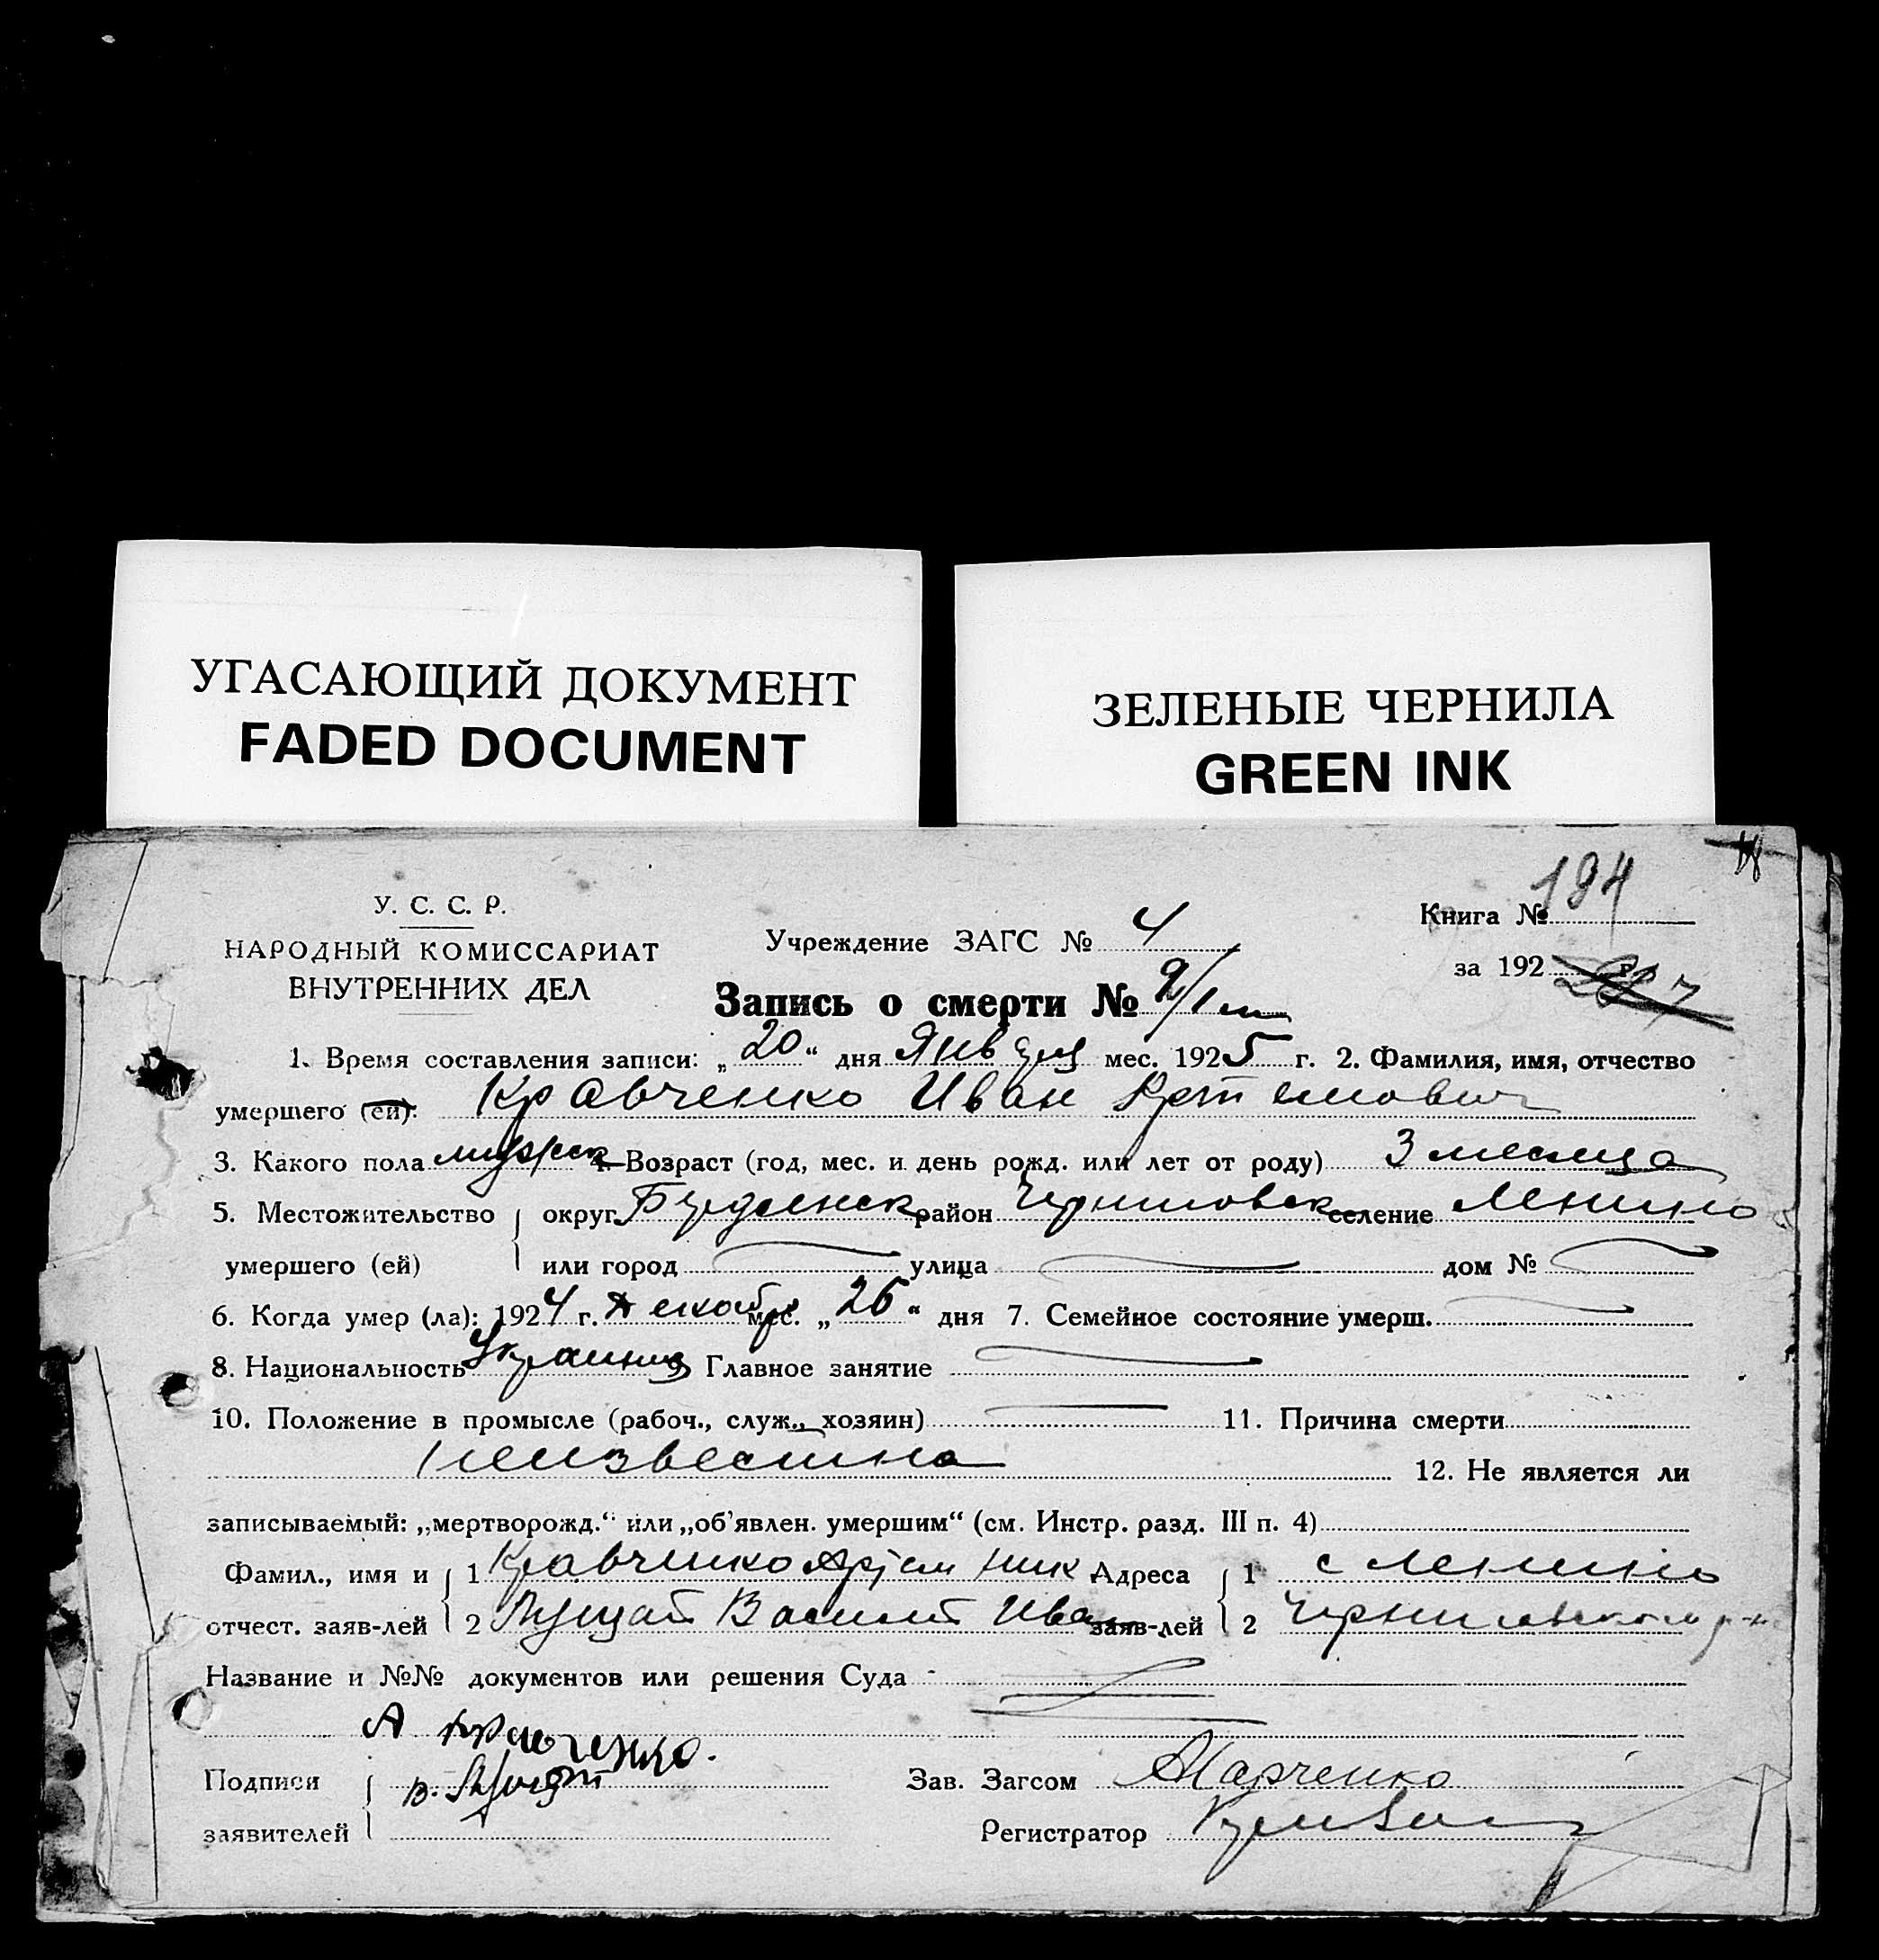 УГАСАЮЩИЙ ДОКУМЕНТ
FADED DOCUMENT
ЗЕЛЕНЫЕ ЧЕРНИЛА
GREEN INK
У. С. С. Р.
НАРОДНЫЙ КОМИССАРИАТ
ВНУТРЕННИХ ДЕЛ
Учреждение ЗАГС № 4
Книга № 194
за 192 г.
Запись о смерти №
1. Время составления записи: „20“ дня Января мес. 1925 г. 2. Фамилия, имя, отчество
умершего (ей): Кравченко Иван Артемович
3. Какого пола мужск Возраст (год, мес. и день рожд. или лет от роду) 3 месяца
5. Местожительство округ район Черниговск селение Ленино
умершего (ей) или город улица дом №
6. Когда умер (ла): 1924 г. Декабр мес. „26“ дня 7. Семейное состояние умерш.
8. Национальность Украинец Главное занятие
10. Положение в промысле (рабоч., служ., хозяин) 11. Причина смерти
неизвестна 12. Не является ли
записываемый: „мертворожд.“ или „об'явлен. умершим“ (см. Инстр. разд. III п. 4)
Фамил., имя и 1 Кравченко Артем Ник Адреса 1 с Ленино
отчест. заяв-лей 2 Василий Иван заяв-лей 2
Название и №№ документов или решения Суда
А Кравченко.
Подписи В. Зав. Загсом Марченко
заявителей Регистратор